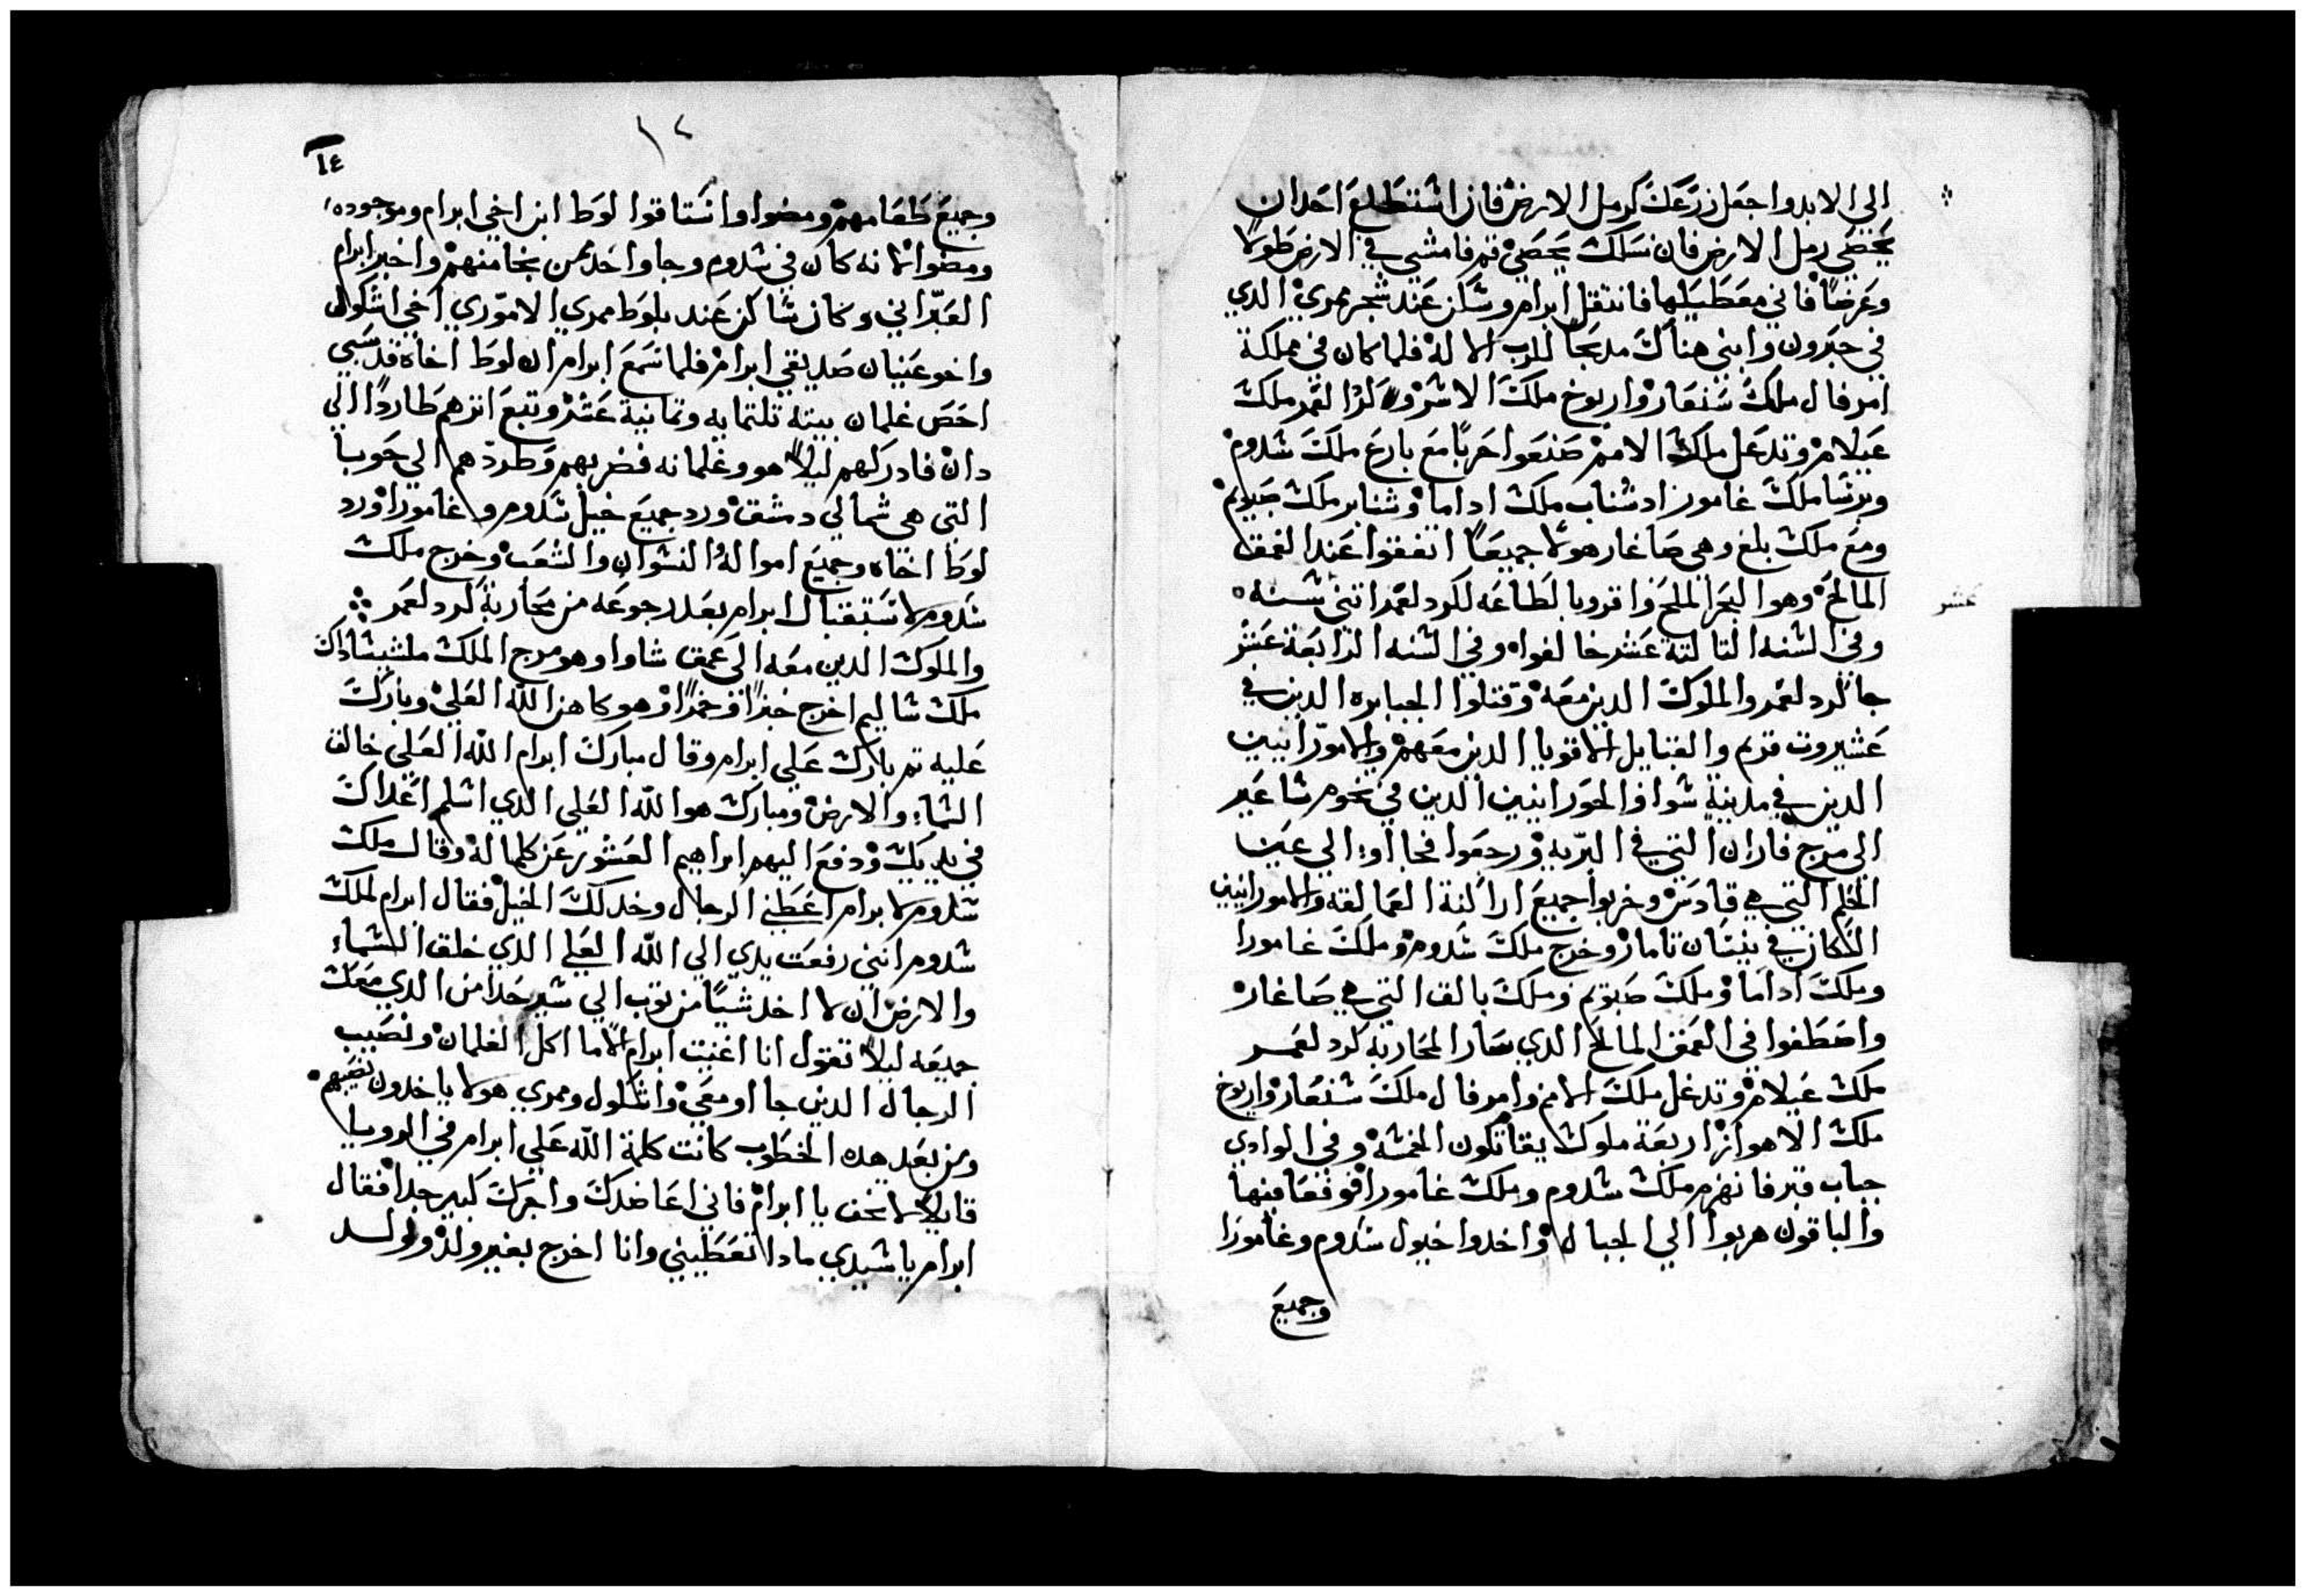 الي الابد واجعل زرعك كرمل الارض فان اشتطاع احدان
يحصي رمل الارض فان نسلك يحصي قم فامشي في الارض طولا
وعرضا فاني معطيلها فانتقل ابرام وشكن عند شجر ممري الدي
في حبرون وابني هناك مدبحا للرب الاله فلما كان في مملكة
امرفال ملك شنعار واريوخ ملك الاشر وكرد لغمر ملك
عيلام وتدعل ملك الامم صنعوا حربا مع بارع ملك شدوم
وبرشا ملك غامورا دشناب ملك اداما وشنابر ملك صبويم
ومع ملك بلغ وهي صاغار هولا جميعا اتفقوا عند الغمق
المالح وهوا البحر الملح واقروبا لطاعه لكرد لغمر اتني شنه
عشر
وفي الشنه التالتة عشر خالفواه وفي الشنه الرابعة عشر
جا كرد لغمر والملوك الدين معه وقتلوا الجبابره الدين في
عشيروت قريم والقبايل الاقويا الدين معهم والامورانيين
الدين في مدينة شوا والحورانيين الدين في تخوم شاعير
الي مرج فاران التي في البريه ورجعوا فجااوا الي عين
الحكم التي هي قادس وخربوا جميع اراكنة العمالقه والامورانيين
الشكان في بنشان تامار وخرج ملك شدوم وملك غامورا
وملك اداما وملك صبويم وملك بالق التي هي صاغار
واصطفوا في الغمق المالح الدي سار المحاربة كرد لغمر
ملك عيلام وتدعل ملك الامم وامرفال ملك شنعار واريوخ
ملك الاهواز اربعة ملوك يقاتلون الخمشة وفي الوادي
جباب قير فانهزم ملك شدوم وملك غامورا فوقعا فيها
والباقون هربوا الي الجبال واخدوا خيول شدوم وغامورا
وجميع
١٤
١٢
وجميع طعامهم ومضوا واستاقوا لوط ابن اخي ابرام وموجوده
ومضوا لانه كان في شدوم وجا واحد ممن نجا منهم واخبر ابرام
العبراني وكان شاكن عند بلوط ممري الاموري اخي اشكول
واخو عنيان صديقي ابرام فلما سمع ابرام ان لوط اخاه قد سبي
احص غلمان بيته تلتمايه وتمانية عشر وتبع اترهم طاردا الي
دان فادركهم ليلا هو وغلمانه فضربهم وطردهم الي حوبا
التي هي شمالي دمشق ورد جميع خيل شدوم وغامورا ورد
لوط اخاه وجميع امواله والنشوان والشعب وخرج ملك
شدوم لاستقبال ابرام بعد رجوعه من محاربة كرد لغمر
والملوك الدين معه الي عمق شاوا وهو مرج الملك ملشيشاداك
ملك شاليم اخرج خبزا وخمرا وهو كاهن الله العلي وبارك
عليه تم بارك علي ابرام وقال مبارك ابرام الله العلي خالق
الشماء والارض ومبارك هو الله العلي الدي اشلم اعداك
في يديك ودفع اليهم ابراهيم العشور عن كلما له وقال ملك
شدوم لابرام اعطني الرجال وخد لك الخيل فقال ابرام لملك
شدوم انني رفعت يدي الي الله العلي الدي خلق الشماء
والارض ان لا اخد شيا من توب الي شير حدا من الدي معك
جميعه ليلا تقول انا اغنيت ابرام الا ما اكل الغلمان ونصيب
الرجال الدين جااو معي واشكول وممري هولا ياخدون نصيبهم
ومن بعد هده الخطوب كانت كلمة الله علي ابرام في الرويا
قايلا لا تخف يا ابرام فاني اعاضدك واجرك كبير جدا فقال
ابرام يا شيدي مادا تعطيني وانا اخرج بغير ولد وولد